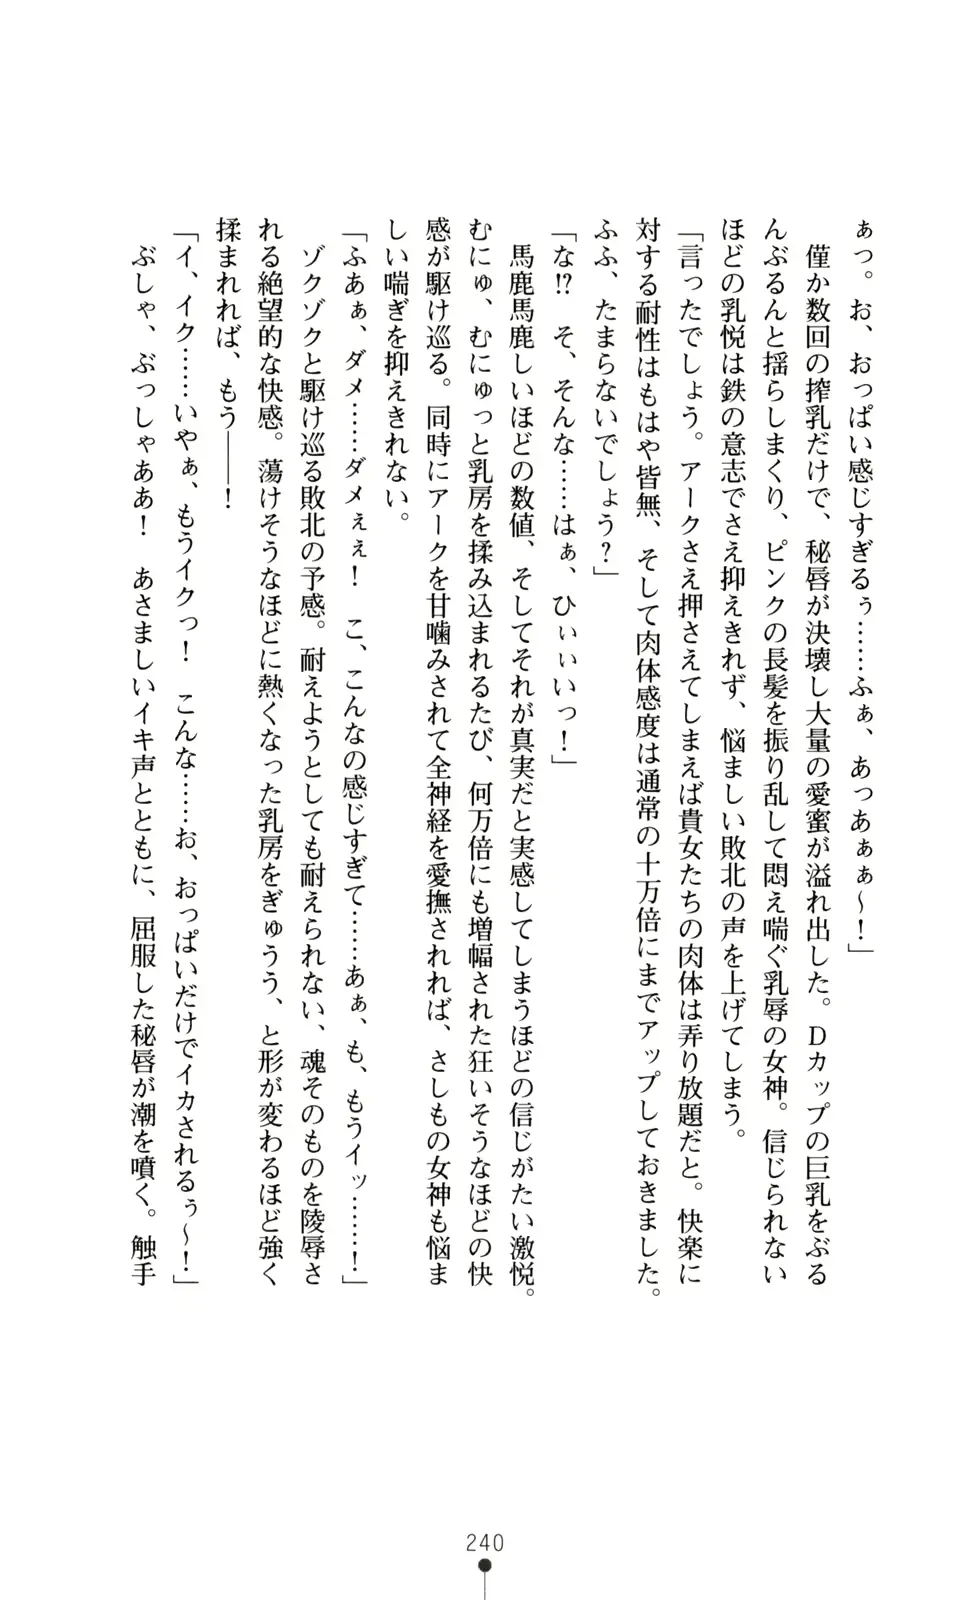 ぁっ。お、おっぱい感じすぎるぅ……ふぁ、あっあぁぁ～！」
　僅か数回の搾乳だけで、秘唇が決壊し大量の愛蜜が溢れ出した。Ｄカップの巨乳をぶる
んぶるんと揺らしまくり、ピンクの長髪を振り乱して悶え喘ぐ乳辱の女神。信じられない
ほどの乳悦は鉄の意志でさえ抑えきれず、悩ましい敗北の声を上げてしまう。
「言ったでしょう。アークさえ押さえてしまえば貴女たちの肉体は弄り放題だと。快楽に
対する耐性はもはや皆無、そして肉体感度は通常の十万倍にまでアップしておきました。
ふふ、たまらないでしょう？」
「な!?　そ、そんな……はぁ、ひぃぃいっ！」
　馬鹿馬鹿しいほどの数値、そしてそれが真実だと実感してしまうほどの信じがたい激悦。
むにゅ、むにゅっと乳房を揉み込まれるたび、何万倍にも増幅された狂いそうなほどの快
感が駆け巡る。同時にアークを甘噛みされて全神経を愛撫されれば、さしもの女神も悩ま
しい喘ぎを抑えきれない。
「ふあぁ、ダメ……ダメぇぇ！　こ、こんなの感じすぎて……あぁ、も、もうイッ……！」
　ゾクゾクと駆け巡る敗北の予感。耐えようとしても耐えられない、魂そのものを陵辱さ
れる絶望的な快感。蕩けそうなほどに熱くなった乳房をぎゅうう、と形が変わるほど強く
揉まれれば、もう――！
「イ、イク……いやぁ、もうイクっ！　こんな……お、おっぱいだけでイカされるぅ～！」
　ぶしゃ、ぶっしゃああ！　あさましいイキ声とともに、屈服した秘唇が潮を噴く。触手
240